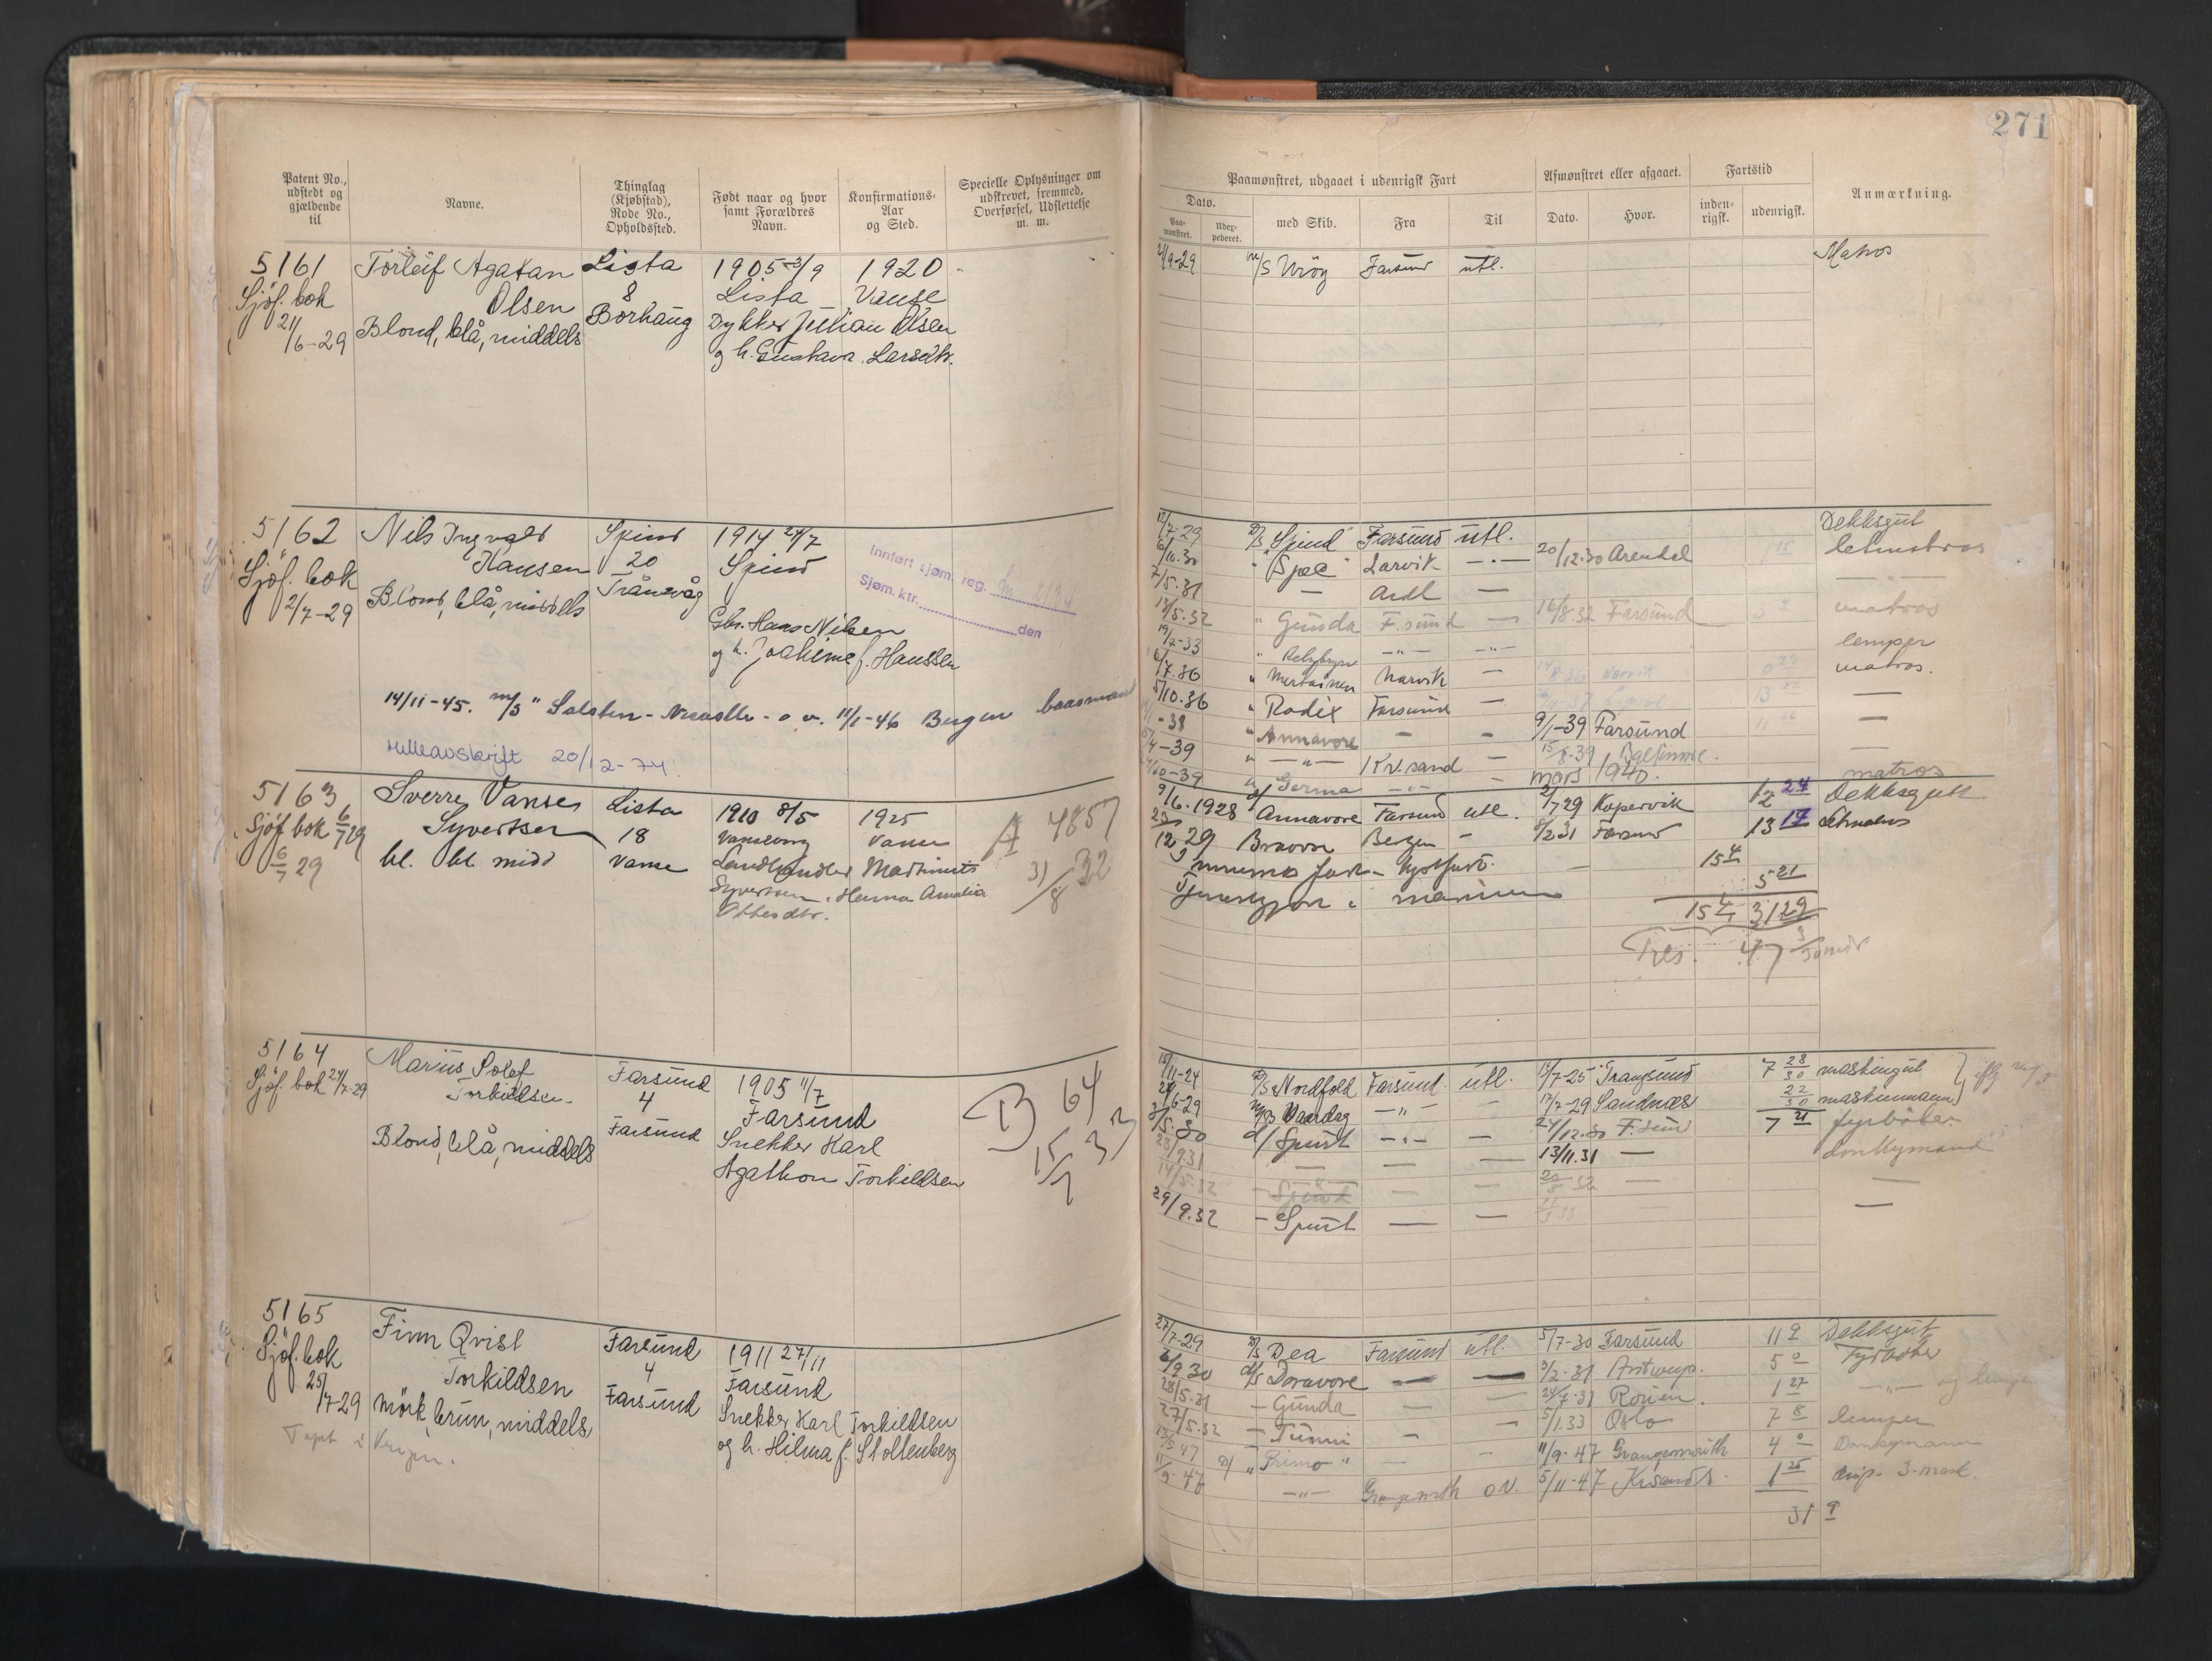 271
Patent No., udstedt og gjældende til
Navne.
Thinglag (Kjøbstad), Rode No., Opholdssted.
Født naar og hvor samt Forældres Navn.
Konfirmations-Aar og Sted.
Specielle Oplysninger om udskrevet, fremmed, Overførsel, Udslettelse m. m.
Paamønstret, udgaaet i udenrigsk Fart
Dato.
Paa-mønstret.
Udex-pederet.
med Skib.
Fra
Til
Afmønstret eller afgaaet.
Dato.
Hvor.
Fartstid
inden-rigsk.
udenrigsk.
Anmærkning.
5161
Sjöf. bok
21/6-29
Torleif Agatan
Olsen
Blond, blå, middels
Lista
8
Börhaug
1905 3/9
Lista
1920
Vanse
Dykker Julian Olsen
og h. Gustava Larsdtr.
2/9-29 m/S Farsund utl.
Matros
5162
Sjöf. bok
2/7-29
Nils Ingvald
Hansen
Blond, blå, middels
Spind
20
Trånevåg
1914 24/7
Spind
Gbr. Hans Nilsen
og h. Joakime f. Hanssen
Innført sjøm. reg.
Sjøm.ktr. den
14/11-45. m/s "Salsten - o v. 11/1-46 Bergen baasmand
Rulleavskrift 20/12-74.
12/7-29 D/S Spind Farsund utl. Dekksgut
6/10.30 " Spec Larvik — 20/12.30 Arendal letmatros
7/5.31 — Ardl —
12/5.32 " Gunda F.sund — 16/8.32 Farsund matros
19/2-33 " lemper
7.36 " Mertainen Narvik — matros.
5/10.36 " Radix Farsund — 13 —
-38 " Annavore — 9/1-39 Farsund —
4-39 " — Kr.sand — 15/8-39 Baltimore. —
10-39 " Germa — mars 1940. matros
5163
Sjöf bok 6/7 29
6/7 29
Sverre Vanse
Syvertsen
bl. bl. midd
Lista
18
Vanse
1910 8/5
Vanseborg
1925
Vanse
Landhandler Martinius
Syvertsen, Hanna Amalia
Ottesdtr.
A 4857
31/8 32
9/6.1928 d/ Annavore Farsund utl. 2/7 29 Kopervik 12 24 Dekksgutt
12.29 Bravore Bergen — 8/2 31 Farsund 13 17 Letmatros
15 4
5 21
Tjeneste i marinen
15 4 31 29
Tils. 47 3/30 mdr
5164
Sjöf. bok 24/7-29
Marius Solef
Torkildsen
Blond, blå, middels
Farsund
4
Farsund
1905 11/7
Farsund
Snekker Karl
Agathon Torkildsen
B 64
15/7 33
15/11-24 D/S Nordfold Farsund utl. 14/7-25 Trangsund 7 28/30 maskingut
24/6-29 m/s Vaardag — 17/7-29 Sandnæs 22/30 maskinmann
3/5.30 d/ Spurt — 24/12.30 F.sund 7 21 fyrböter
23/2 31 — 13/11.31 — donkymand
14/5.32 — Spind — 20/8 32 —
29/9.32 — Spurt — —
5165
Sjöf. bok
25/7-29
Finn Qvist
Torkildsen
Mörk brun, middels
Tapt i Krigen.
Farsund
4
Farsund
1911 27/11
Farsund
Snekker Karl Torkildsen
og h. Hilma f. Stoltenberg
27/7-29 D/S Dea Farsund utl. 5/7-30 Farsund 11 9 Dekksgut
6/9.30 d/s Doravore — — 3/2.31 Antwerp. 5 0 Fyrböter
28/5.31 — Gunda — 24/7.31 Rouen. 1 27 — og lemper
27/5.32 — Tuomi — — 5/1.33 Oslo 7 8 lemper
13/5 47 D/ "Primo" — — 11/9.47 Grangemouth 4 0 Donkeymann
11/9.47 — Grangemth o.v. 5/11-47 Krsand S. 1 25 disp. 3.mask.
31 9